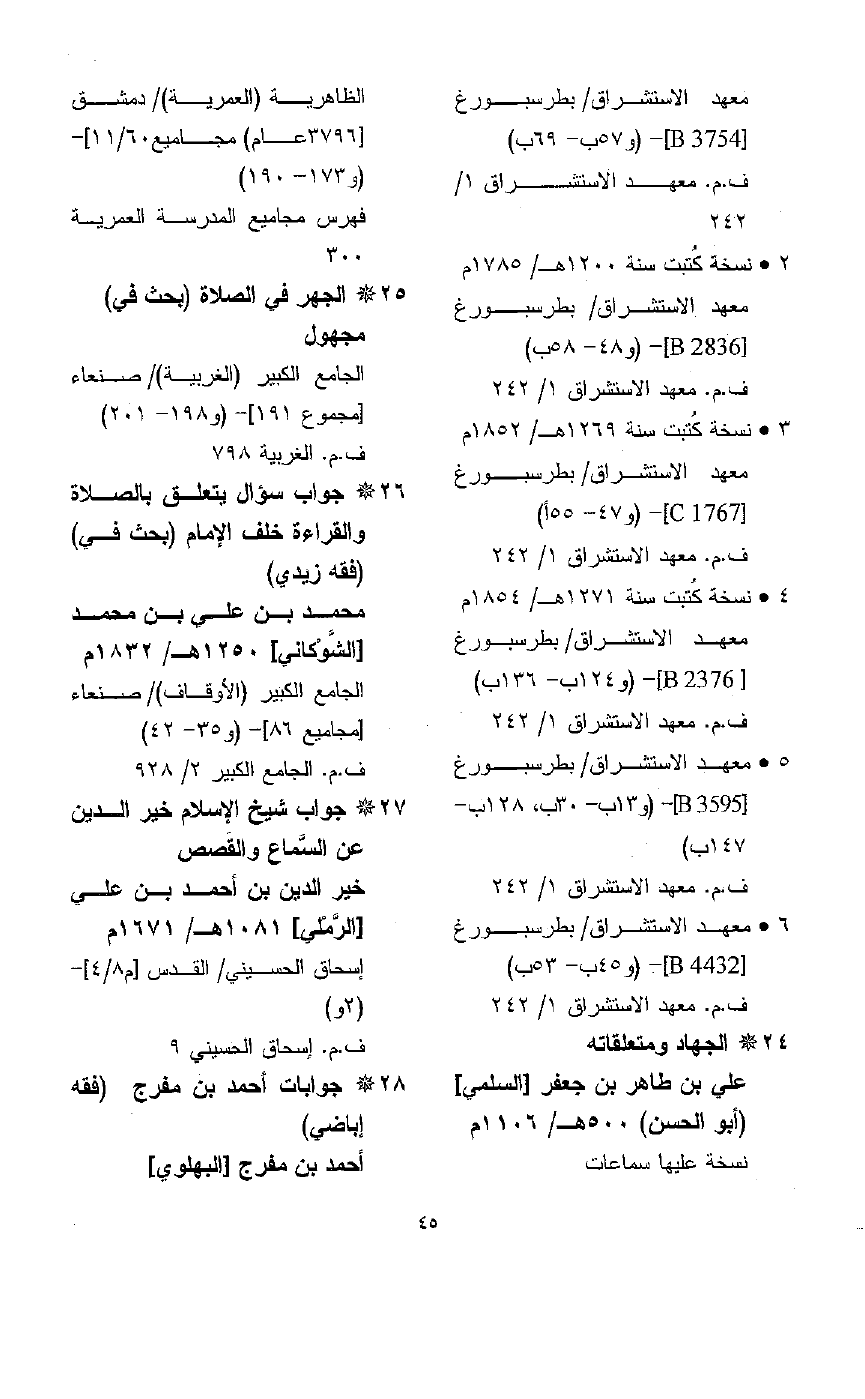 معهد الاستشراق/ بطرسبورغ
[B 3754]- (و٥٧ب- ٦٩ب)
ف.م. معهد الاستشراق ١/
٢٤٢
٢ • نسخة كُتبت سنة ١٢٠٠هـ/ ١٧٨٥م
معهد الاستشراق/ بطرسبورغ
[B 2836]- (و٤٨- ٥٨ب)
ف.م. معهد الاستشراق ١/ ٢٤٢
٣ • نسخة كُتبت سنة ١٢٦٩هـ/ ١٨٥٢م
معهد الاستشراق/ بطرسبورغ
[C 1767]- (و٤٧- ٥٥أ)
ف.م. معهد الاستشراق ١/ ٢٤٢
٤ • نسخة كُتبت سنة ١٢٧١هـ/ ١٨٥٤م
معهد الاستشراق/ بطرسبورغ
[B 2376 ]- (و١٢٤ب- ١٣٦ب)
ف.م. معهد الاستشراق ١/ ٢٤٢
٥ • معهد الاستشراق/ بطرسبورغ
[B 3595]- (و١٣ب- ٣٠ب، ١٢٨ب-
١٤٧ب)
ف.م. معهد الاستشراق ١/ ٢٤٢
٦ • معهد الاستشراق/ بطرسبورغ
[B 4432]- (و٤٥ب- ٥٣ب)
ف.م. معهد الاستشراق ١/ ٢٤٢
٢٤❋ الجهاد ومتعلقاته
علي بن طاهر بن جعفر [السلمي]
(أبو الحسن) ٥٠٠هـ/ ١١٠٦م
نسخة عليها سماعات
الظاهرية (العمرية)/ دمشق
[٣٧٩٦عام) مجاميع١١/٦٠]-
(و١٧٣- ١٩٠)
فهرس مجاميع المدرسة العمرية
٣٠٠
٢٥❋ الجهر في الصلاة (بحث في)
مجهول
الجامع الكبير (الغربية)/ صنعاء
[مجموع ١٩١]- (و١٩٨- ٢٠١)
ف.م. الغربية ٧٩٨
٢٦❋ جواب سؤال يتعلق بالصلاة
والقراءة خلف الإمام (بحث في)
(فقه زيدي)
محمد بن علي بن محمد
[الشَّوْكاني] ١٢٥٠هـ/ ١٨٣٢م
الجامع الكبير (الأوقاف)/ صنعاء
[مجاميع ٨٦]- (و٣٥- ٤٢)
ف.م. الجامع الكبير ٢/ ٩٢٨
٢٧❋ جواب شيخ الإسلام خير الدين
عن السَّماع والقَصص
خير الدين بن أحمد بن علي
[الرَّمْلي] ١٠٨١هـ/ ١٦٧١م
إسحاق الحسيني/ القدس [م٤/٨]-
(٢و)
ف.م. إسحاق الحسيني ٩
٢٨❋ جوابات أحمد بن مفرج (فقه
إباضي)
أحمد بن مفرج [البهلوي]
٤٥